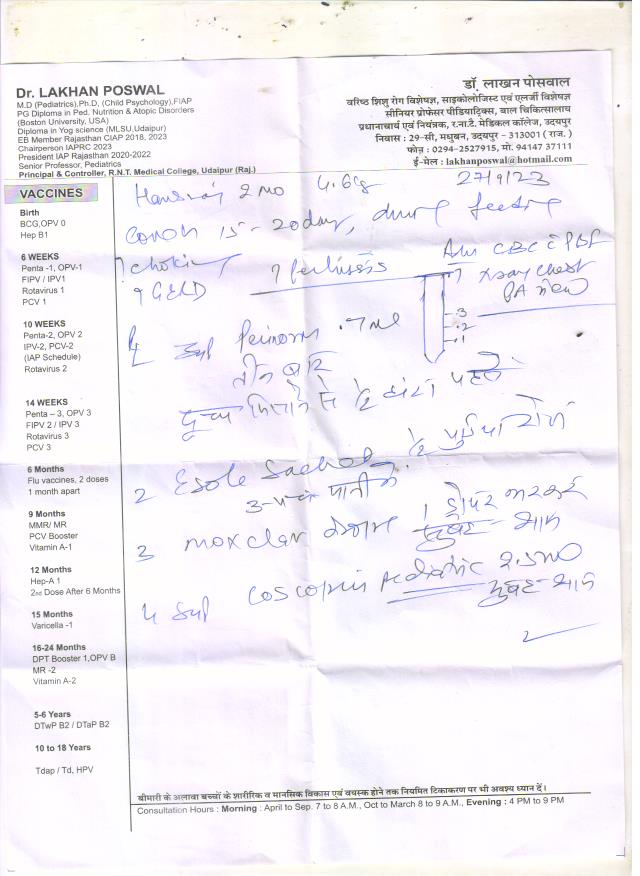 Dr. LAKHAN POSWAL
M.D (Pediatrics),Ph.D, (Child Psychology),FIAP
PG Diploma in Ped. Nutrition & Atopic Disorders
(Boston University, USA)
Diploma in Yog science (MLSU,Udaipur)
EB Member Rajasthan CIAP 2018, 2023
Chairperson IAPRC 2023
President IAP Rajasthan 2020-2022
Senior Professor, Pediatrics
Principal & Controller, R.N.T. Medical College, Udaipur (Raj.)
डॉ. लाखन पोसवाल
वरिष्ठ शिशु रोग विशेषज्ञ, साइकोलोजिस्ट एवं एलर्जी विशेषज्ञ
सीनियर प्रोफेसर पीडियाट्रिक्स, बाल चिकित्सालाय
प्रधानाचार्य एवं नियंत्रक, र.ना.टै. मेडिकल कॉलेज, उदयपुर
निवास : 29-सी, मधुबन, उदयपुर - 313001 ( राज. )
फोन : 0294-2527915, मो. 94147 37111
ई-मेल : lakhanposwal@hotmail.com
VACCINES
Birth
BCG,OPV 0
Hep B1
6 WEEKS
Penta -1, OPV-1
FIPV / IPV1
Rotavirus 1
PCV 1
10 WEEKS
Penta-2, OPV 2
IPV-2, PCV-2
(IAP Schedule)
Rotavirus 2
14 WEEKS
Penta – 3, OPV 3
FIPV 2 / IPV 3
Rotavirus 3
PCV 3
6 Months
Flu vaccines, 2 doses
1 month apart
9 Months
MMR/ MR
PCV Booster
Vitamin A-1
12 Months
Hep-A 1
2nd Dose After 6 Months
15 Months
Varicella -1
16-24 Months
DPT Booster 1,OPV B
MR -2
Vitamin A-2
5-6 Years
DTwP B2 / DTaP B2
10 to 18 Years
Tdap / Td, HPV
Hansraj 2 mo 27/9/23
15-20 day, feeding
? choking ? Pertussis
? GERD
CBC c PBF
xray chest
PA view
.3
.2
.1
.7 ml
तीन बार
1/2 घंटा पहले
2 Esole Sachet 1/2 पुड़िया रोज
3 moxclav 1 ड्रोपर भरकर
सुबह - शाम
4 Syp Coscopin Pediatric 2.5
सुबह - शाम
बीमारी के अलावा बच्चों के शारीरिक व मानसिक विकास एवं वयस्क होने तक नियमित टिकाकरण पर भी अवश्य ध्यान दें।
Consultation Hours : Morning : April to Sep. 7 to 8 A.M., Oct to March 8 to 9 A.M., Evening : 4 PM to 9 PM